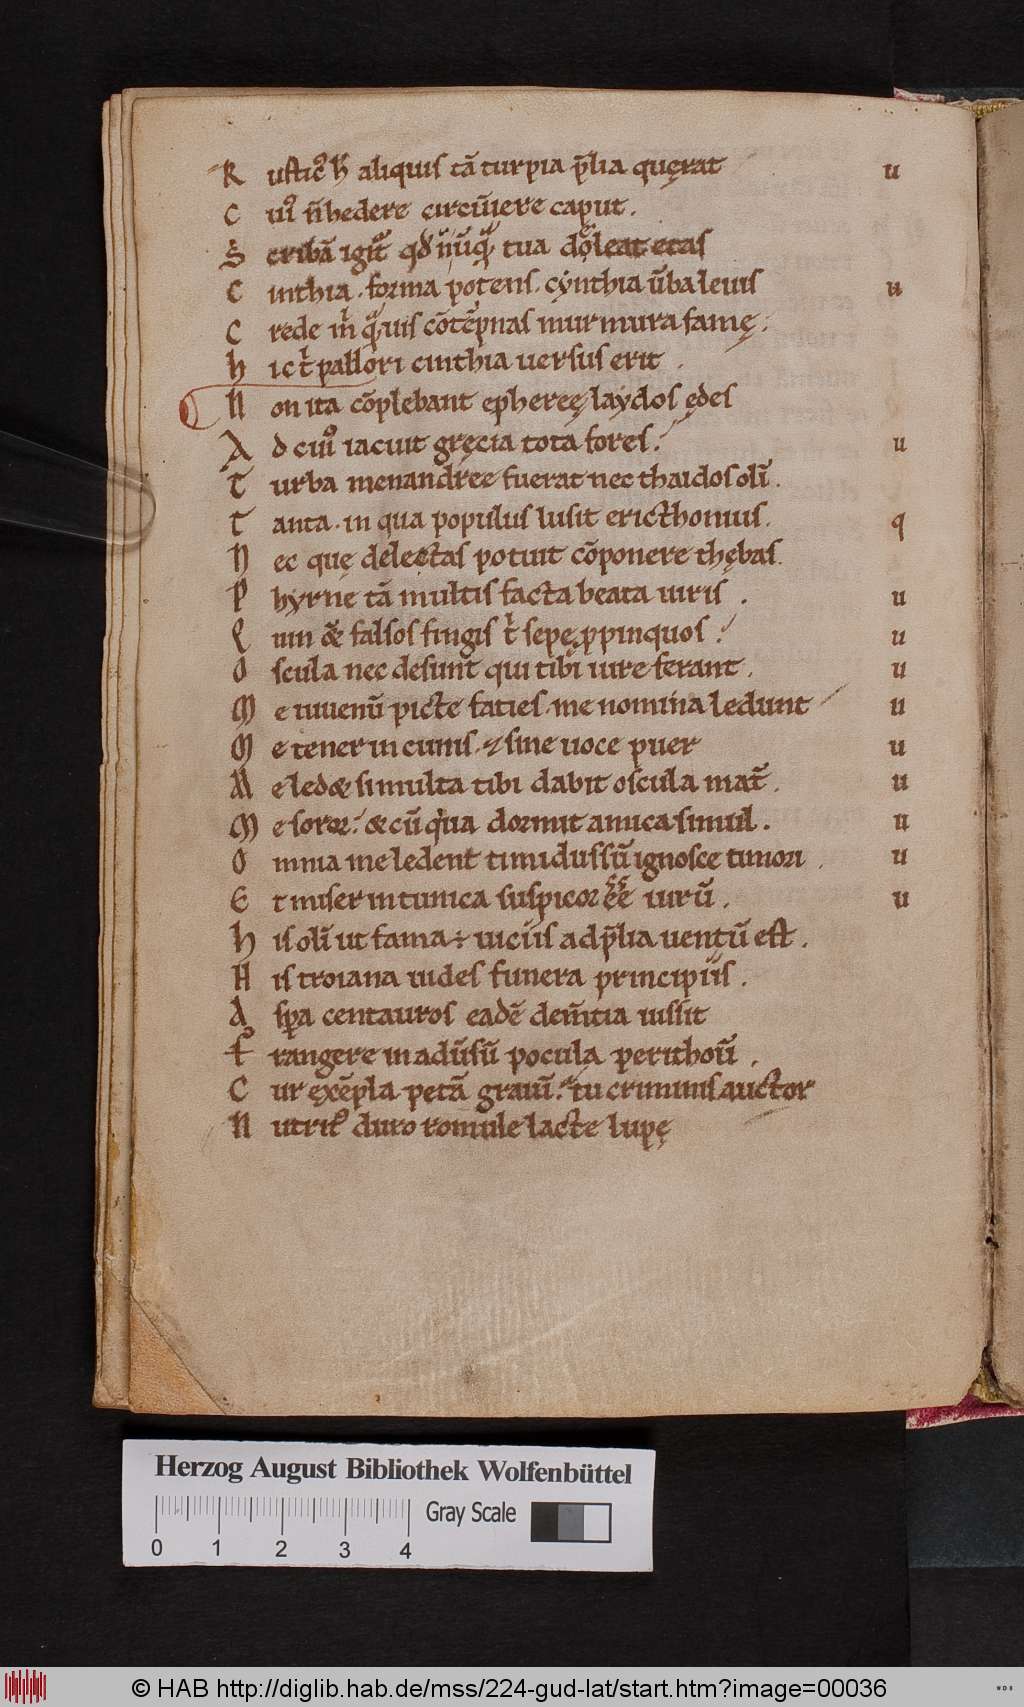 R usticꝰ h̄ aliquis tā turpia p̄lia quęrat u
C uiꝰ n̄ hedere circūiere caput.
S cribā igit̄ qd̓ nūqͣ tua doleat etas
C inthia. forma potens. cynthia ūba leuis u
C rede m̓ qͣuis cōtēpnas murmura famę.
h ic t̓ pallori cinthia uersus erit.
N on ita cōplebant epheręę laydos ędes
A d cuiꝰ iacuit gręcia tota fores. u
T urba menandree fuerat nec thaidos olī.
T anta. in qua populus lusit ericthonius. q
N ec quę delectas potuit cōponere thębas.
P hyrne tā multis facta beata uiris. u
Q uin & falsos fingis t̓ sepę ꝓpinquos. u
O scula nec desunt qui tibi iure ferant. u
M e iuuenū picte facies. me nomina ledunt u
M e tener in cunis. ⁊ sine uoce puer u
M e led& si multa tibi dabit oscula mat̄. u
M e soror. & cū qua dormit amica simul. u
O mnia me ledent timidus sū ignosce timori. u
E t miser in tunica suspicor ee̅ uirū. u
h is olī ut fama ÷ uiciis ad p̄lia uentū est.
H is troiana uides funera principiis.
A spa centauros eadē dem̄tia iussit
F rangere in adūsū pocula perithoū.
C ur exēpla petā grauī. tu criminis auctor
N utritꝰ duro romule lacte lupę
Herzog August Bibliothek Wolfenbüttel
Gray Scale
0 1 2 3 4
© HAB http://diglib.hab.de/mss/224-gud-lat/start.htm?image=00036